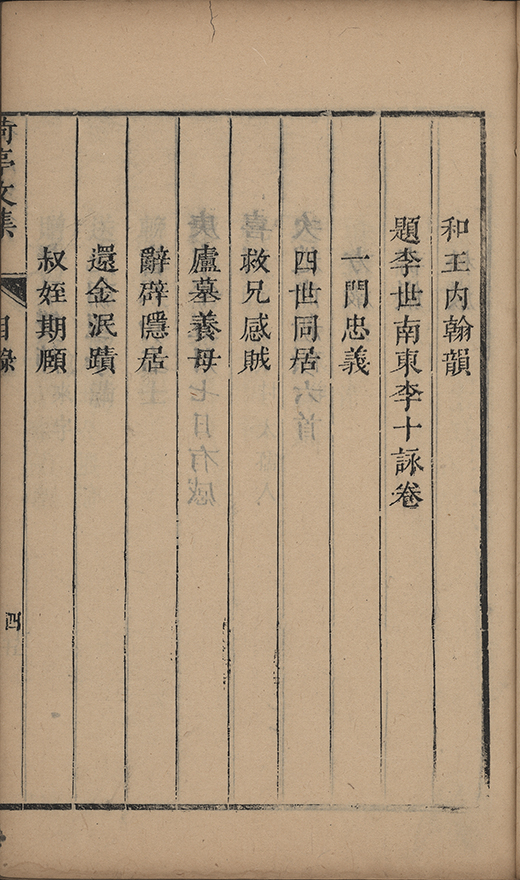 和王内翰韻
題李世南東李十詠卷
一門忠義
四世同居
救兄感賊
廬墓養母
辭辟隱居
還金泯蹟
叔姪期頤
荷亭文集
目錄
四